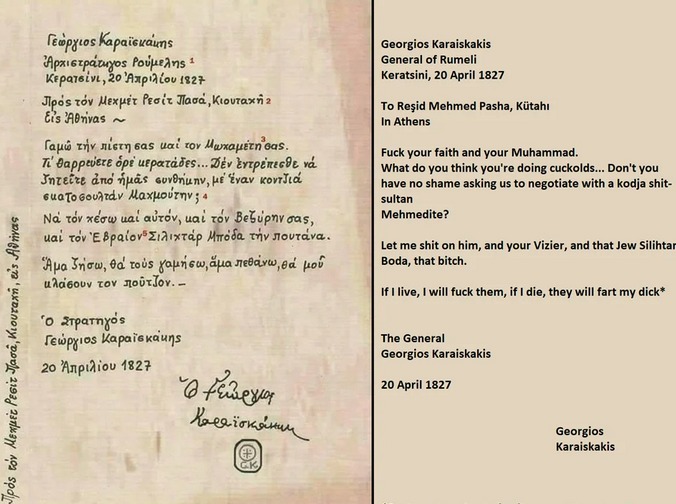 Γεώργιος Καραϊσκάκης
Ἀρχιστράτηγος Ρούμελης 1
Κερατσίνι, 20 Ἀπριλίου 1827
Πρός τόν Μεχμέτ Ρεσίτ Πασά, Κιουταχῆ 2
Εἰς Ἀθήνας ~
Γαμῶ τήν πίστη σας καί τον Μωχαμέτη 3 σας.
Τί θαρρεύετε ὀρέ κερατάδες... Δέν ἐντρέπεσθε νά
ζητεῖτε ἀπό ἡμᾶς συνθήκην, μέ ἕναν κοντζιά
σκατοσουλτάν Μαχμούτην; 4
Νά τόν χέσω καί αὐτόν, καί τόν Βεζύρην σας,
καί τόν Ἑβραῖον 5 Σιλιχτάρ Μπόδα τήν πουτάνα.
Ἅμα ζήσω, θά τούς γαμήσω, ἅμα πεθάνω, θά μοῦ
κλάσουν τον ποῦτζον. _
Ὁ Στρατηγός
Γεώργιος Καραϊσκάκης
20 Ἀπριλίου 1827
Ὁ Γεώργιος
Καραϊσκάκης
Γ.Κ
Πρός τόν Μεχμέτ Ρεσίτ Πασᾶ, Κιουταχῆ, εἰς Ἀθήνας
Georgios Karaiskakis
General of Rumeli
Keratsini, 20 April 1827
To Reşid Mehmed Pasha, Kütahı
In Athens
Fuck your faith and your Muhammad.
What do you think you're doing cuckolds... Don't you
have no shame asking us to negotiate with a kodja shit-
sultan
Mehmedite?
Let me shit on him, and your Vizier, and that Jew Silihtar
Boda, that bitch.
If I live, I will fuck them, if I die, they will fart my dick*
The General
Georgios Karaiskakis
20 April 1827
Georgios
Karaiskakis